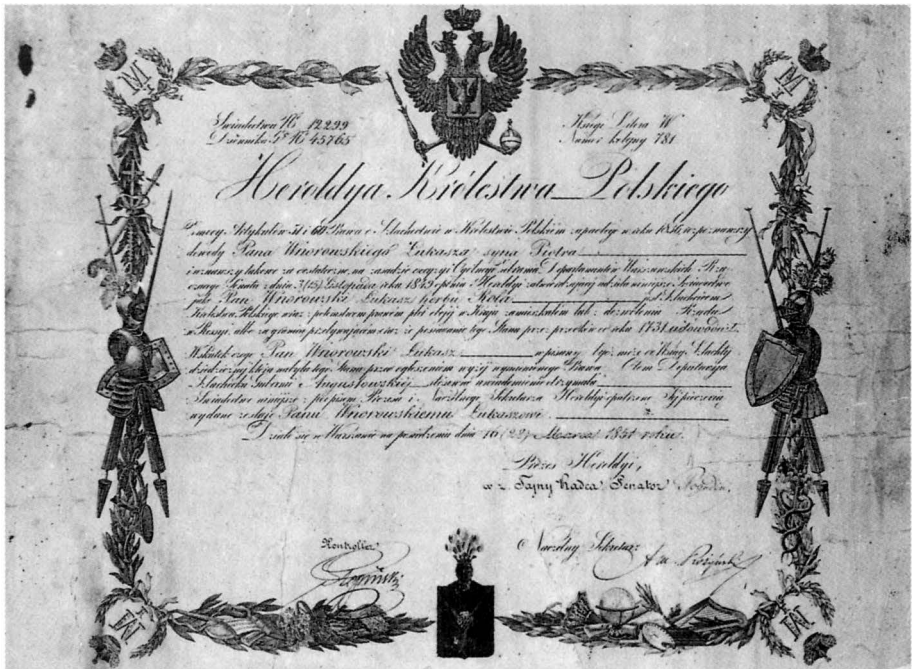 Świadectwa Nº 12299
Dziennika Gº Nº 45765
Księgi Litera W
Numer kolejny 781
Heroldya Królestwa Polskiego
Z mocy Artykułów 51 i 60 Prawa o Szlachectwie w Królestwie Polskim zapadłego w roku 1836, rozpoznawszy
dowody Pana Wnorowskiego Łukasza syna Piotra
i uznawszy takowe za dostateczne, na zasadzie decyzyi Ogólnego Zebrania Departamentów Warszawskich Rzą-
dzącego Senatu z dnia Listopada roku 1849 opinię Heroldyi zatwierdzającej niniejsze Świadectwo
jako Pan Wnorowski Łukasz herbu Rola jest Szlachcicem
Królestwa Polskiego wraz z potomstwem prawem płci obojej w Kraju zamieszkałem lub z dozwolenia Rządu
w Rossyi, albo za granicą przebywającem i że posiadanie tego Stanu przez przodków do roku udowodnił.
Wskutek czego Pan Wnorowski Łukasz wpisany być może do Księgi Szlachty
dziedzicznej która nabyła tego Stanu przed ogłoszeniem wyżej wymienionego Prawa. O tem Deputacya
Szlachecka Gubernii Augustowskiej stosowne uwiadomienie otrzymała
Świadectwo niniejsze z podpisem Prezesa i Naczelnego Sekretarza Heroldyi opatrzone Jej pieczęcią
wydane zostaje Panu Wnorowskiemu Łukaszowi
Działo się w Warszawie na posiedzeniu dnia 16 Marca 1851 roku.
Prezes Heroldyi,
w z. Tajny Radca Senator
Kontroller
Naczelny Sekretarz